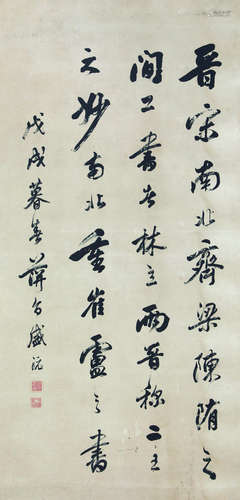 晋宋南北齊梁陳隋之
間工書者林立兩晋稱二王
之妙南北重崔盧之書
戊戌暮春盛沅